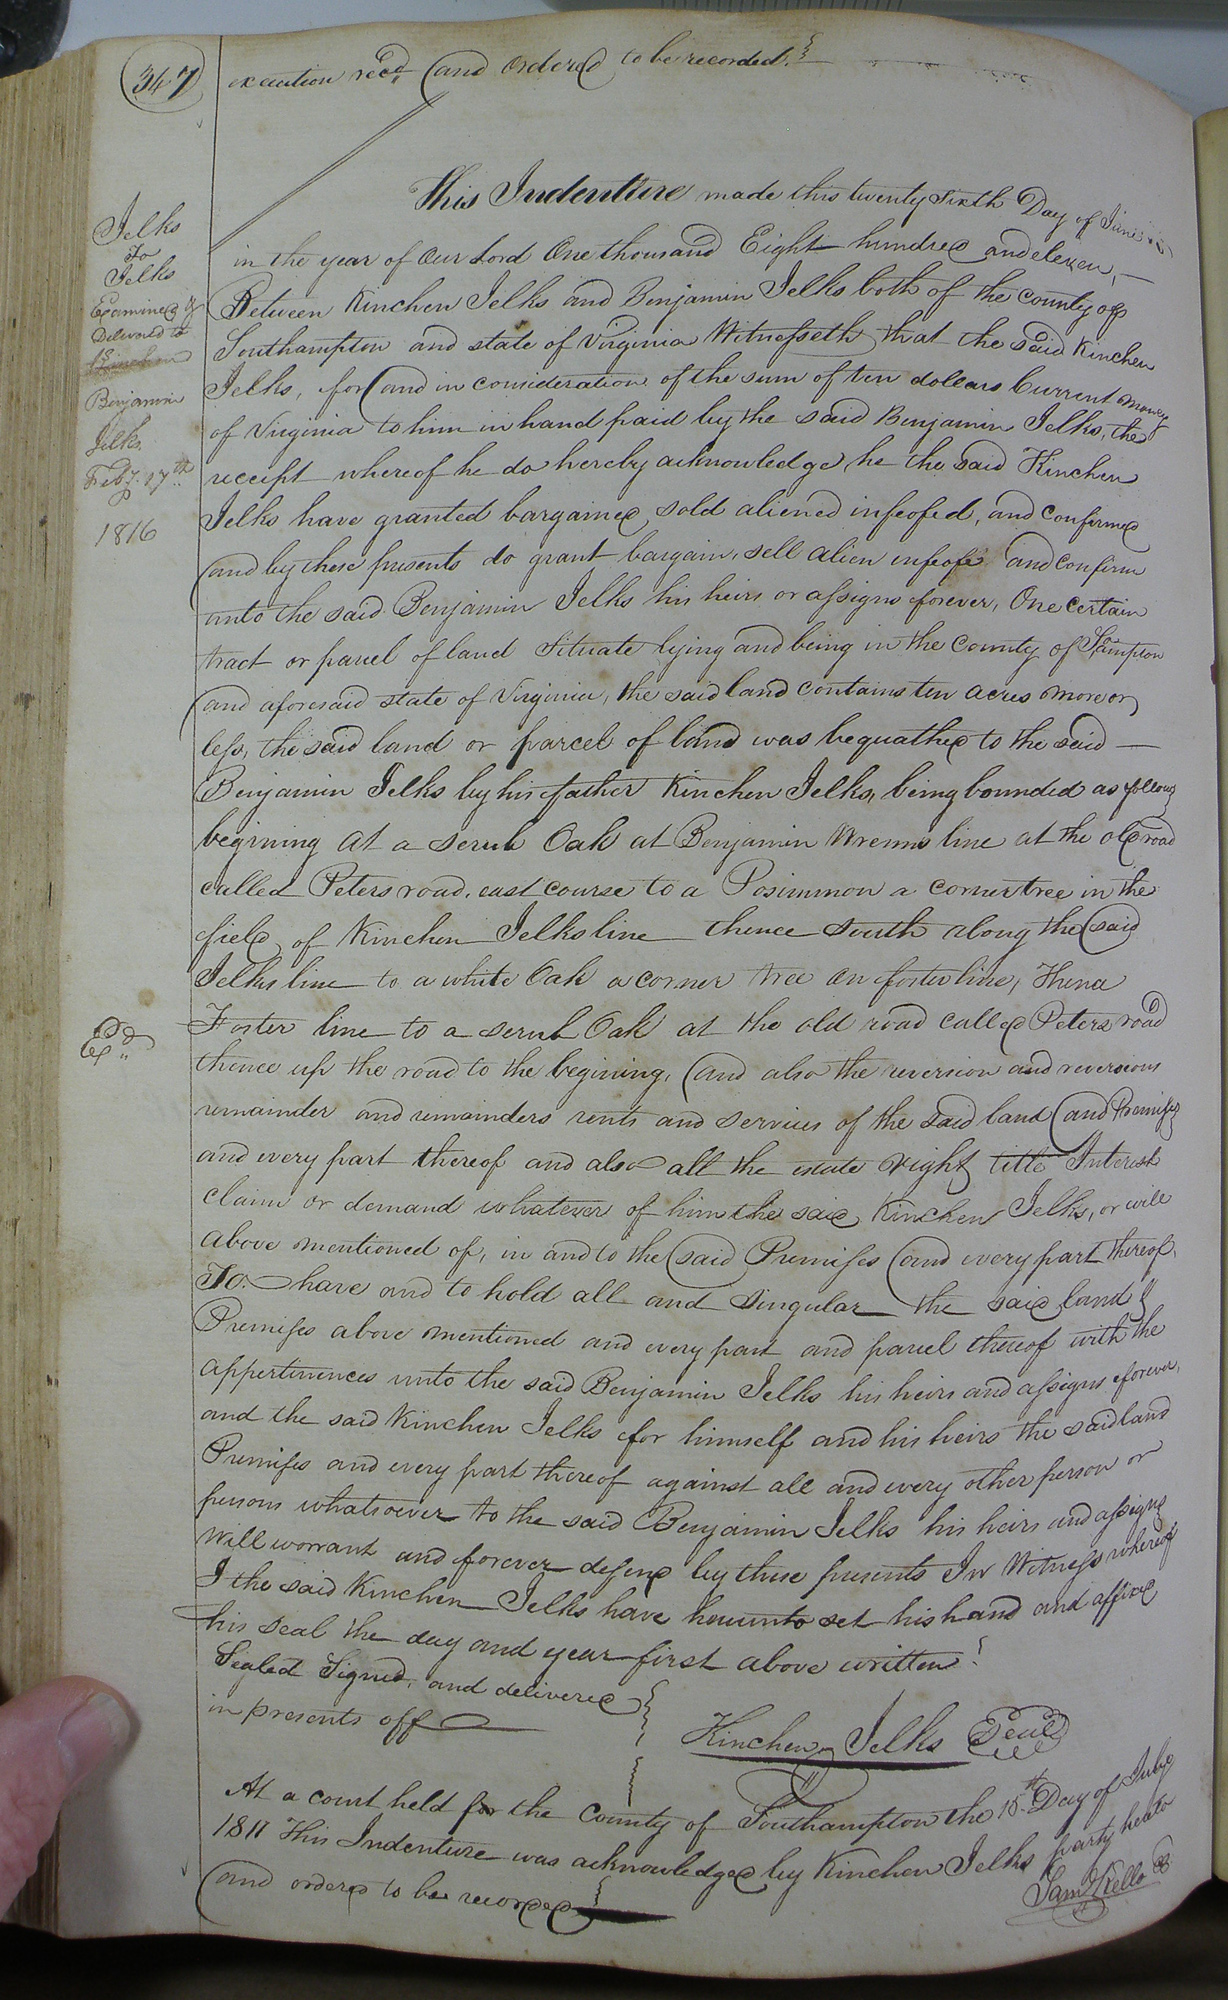 347
execution recd. and ordered to be recorded.
This Indenture made this twenty sixth Day of June
in the year of our Lord One thousand Eight hundred and eleven,
Between Kinchen Jelks and Benjamin Jelks both of the county of
Southampton and state of Virginia Witnesseth that the said Kinchen
Jelks, for and in consideration of the sum of ten dollars Current money
of Virginia to him in hand paid by the said Benjamin Jelks, the
receipt whereof he do hereby acknowledge, he the said Kinchen
Jelks have granted bargained sold aliened infeofed, and confirmed
and by these presents do grant bargain, sell alien infeofe and confirm
unto the said Benjamin Jelks his heirs or assigns forever, One certain
tract or parcel of land Situate lying and being in the County of Sampton
and aforesaid state of Virginia, the said land contains ten acres more or
less, the said land or parcel of land was bequathed to the said
Benjamin Jelks by his father Kinchen Jelks, being bounded as follows
begining at a scrub Oak at Benjamin Wrenns line at the old road
called Peters road, east course to a Posimmon a corner tree in the
field, of Kinchen Jelks line thence South along the said
Jelks line to a white Oak a corner tree on foster line, Thence
Foster line to a scrub Oak at the old road called Peters road
thence up the road to the begining, and also the reversion and reversions
remainder and remainders rents and services of the said land and Premises
and every part thereof and also all the estate right title Interest
claim or demand whatever of him the said Kinchen Jelks, or will
above mentioned of, in and to the said Premises and every part thereof,
To. have and to hold all and Singular the said land &
Premises above mentioned and every part and parcel thereof with the
appertinences unto the said Benjamin Jelks his heirs and assigns forever,
and the said Kinchen Jelks for himself and his heirs the said land
Premises and every part thereof against all and every other person or
persons whatsoever to the said Benjamin Jelks his heirs and assigns
Will worrant and forever defend by these presents In Witness whereof
I the said Kinchen Jelks have hereunto set his hand and affixed
his seal the day and year first above written.
Sealed Signed, and delivered
in presents off
Kinchen Jelks Seal
At a court held for the County of Southampton the 15th Day of July
1811 This Indenture was acknowledged by Kinchen Jelks party hereto
and ordered to be recorded
Saml Kello
Jelks
To
Jelks
Examined &
Delivered to
Kinchen
Benjamin
Jelks
Feby. 17th
1816
Exd